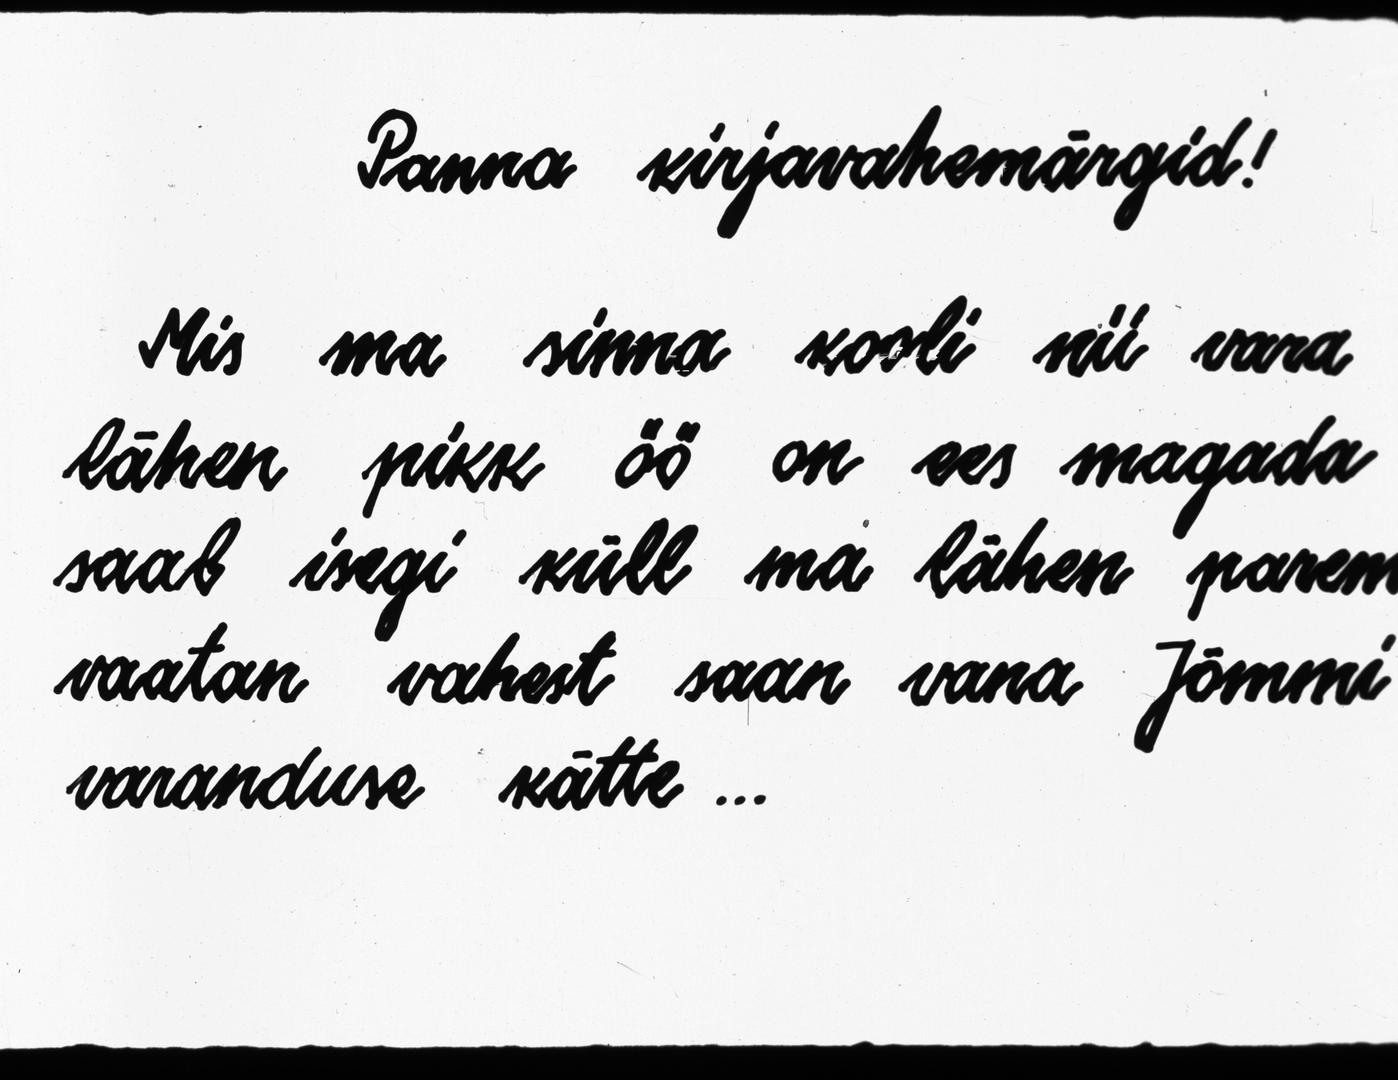 Panna kirjavahemärgid!
Mis ma sinna kooli nii vara
lähen pikk öö on ees magada
saab isegi küll ma lähen parem
vaatan vahest saan vana Jõmmi
varanduse kätte ...